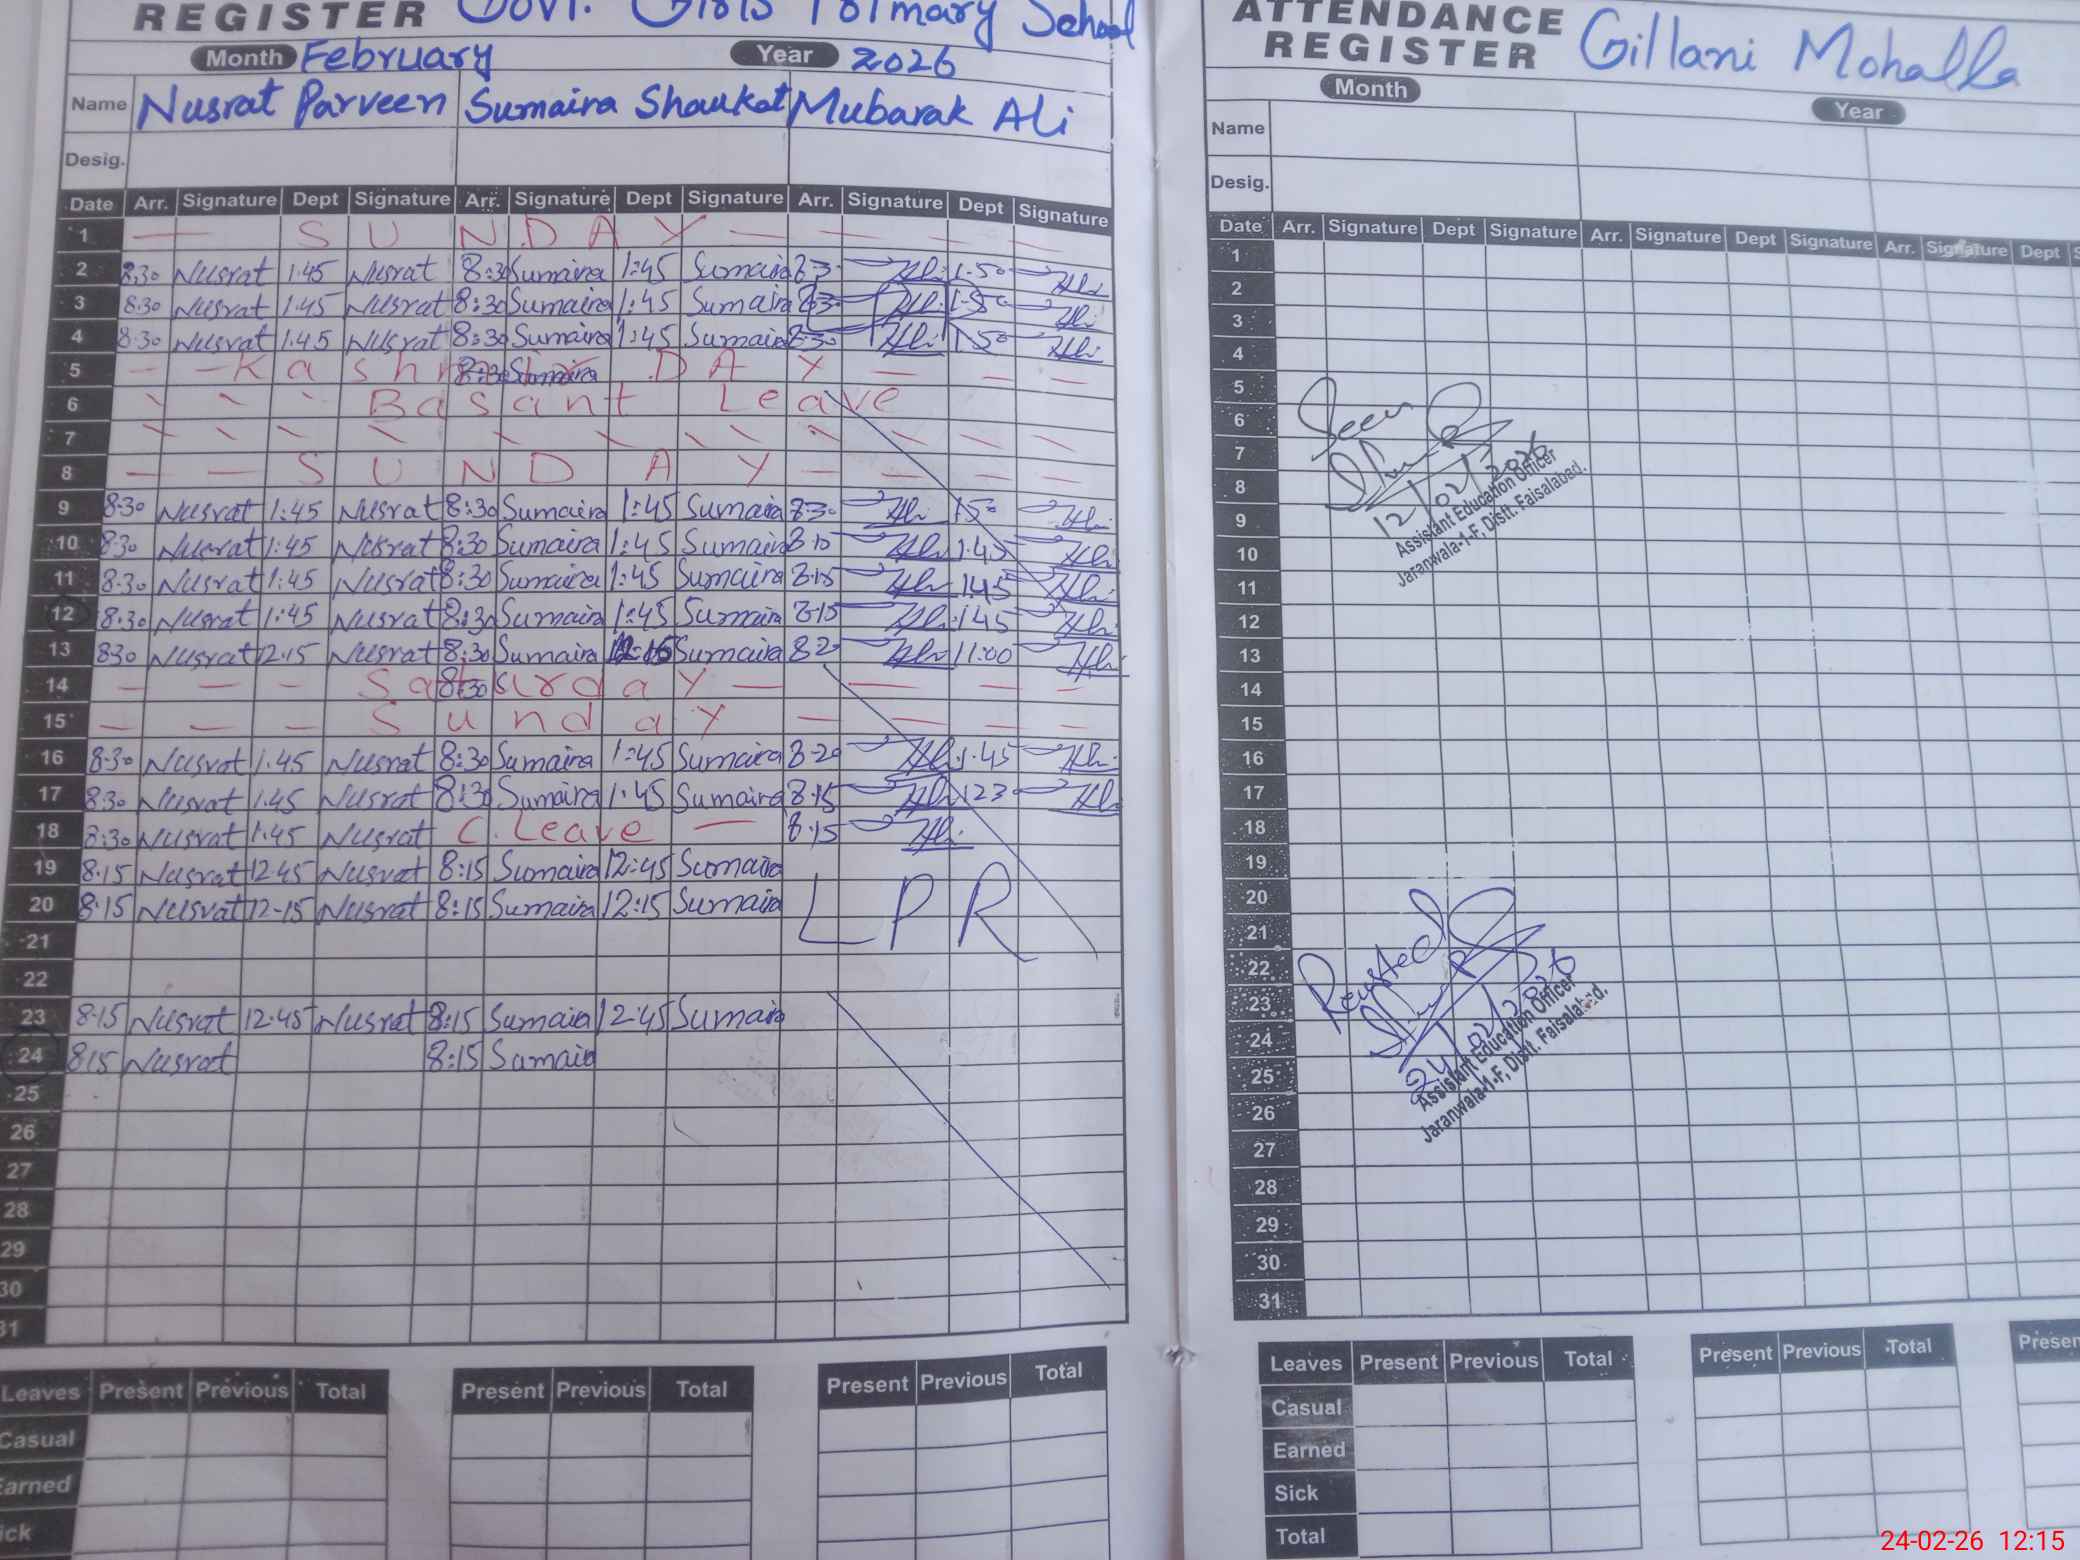 REGISTER Govt. Girls Primary School
Month February Year 2026
Name Nusrat Parveen Sumaira Shaukat Mubarak Ali
Desig.
Date Arr. Signature Dept Signature Arr. Signature Dept Signature Arr. Signature Dept Signature
1 SUNDAY
2 8:30 Nusrat 1.45 Nusrat 8:30 Sumaira 1:45 Sumaira 830 Ali 1.50 Ali
3 8.30 Nusrat 1.45 Nusrat 8:30 Sumaira 1:45 Sumaira 830 Ali 1.50 Ali
4 8.30 Nusrat 1.45 Nusrat 8:30 Sumaira 1:45 Sumaira 8.30 Ali 1.50 Ali
5 Kashmir DAY 8:30 Sumaira
6 Basant Leave
7
8 SUNDAY
9 8.30 Nusrat 1:45 Nusrat 8:30 Sumaira 1:45 Sumaira 830 Ali 1.50 Ali
10 830 Nusrat 1:45 Nusrat 8:30 Sumaira 1:45 Sumaira 8.10 Ali 1.45 Ali
11 8.30 Nusrat 1:45 Nusrat 8:30 Sumaira 1:45 Sumaira 8.15 Ali 1.45 Ali
12 8.30 Nusrat 1:45 Nusrat 8:30 Sumaira 1:45 Sumaira 8.15 Ali 1.45 Ali
13 830 Nusrat 12.15 Nusrat 8:30 Sumaira 12:15 Sumaira 820 Ali 11:00 Ali
14 Saturday 8:30
15 Sunday
16 8.30 Nusrat 1.45 Nusrat 8:30 Sumaira 1:45 Sumaira 8.20 Ali 1.45 Ali
17 8.30 Nusrat 1.45 Nusrat 8:30 Sumaira 1:45 Sumaira 8.15 Ali 1230 Ali
18 8:30 Nusrat 1.45 Nusrat C. Leave 8.15 Ali
19 8.15 Nusrat 12.45 Nusrat 8:15 Sumaira 12:45 Sumaira
20 8.15 Nusrat 12-15 Nusrat 8:15 Sumaira 12:15 Sumaira LPR
21
22
23 8.15 Nusrat 12.45 Nusrat 8:15 Sumaira 12:45 Sumaira
24 815 Nusrat 8:15 Sumaira
25
26
27
28
29
30
31
Leaves Present Previous Total Present Previous Total Present Previous Total
Casual
Earned
ick
ATTENDANCE
REGISTER Gillani Mohalla
Month Year
Name
Desig.
Date Arr. Signature Dept Signature Arr. Signature Dept Signature Arr. Signature Dept S
1
2
3
4
5
6
7
8
9
10
11
12
13
14
15
16
17
18
19
20
21
22
23
24
25
26
27
28
29
30
31
Seen
12/02/2026
Assistant Education Officer
Jaranwala-1-F, Distt. Faisalabad.
24/02/2026
Assistant Education Officer
Jaranwala-1-F, Distt. Faisalabad.
Leaves Present Previous Total Present Previous Total Presen
Casual
Earned
Sick
Total
24-02-26 12:15